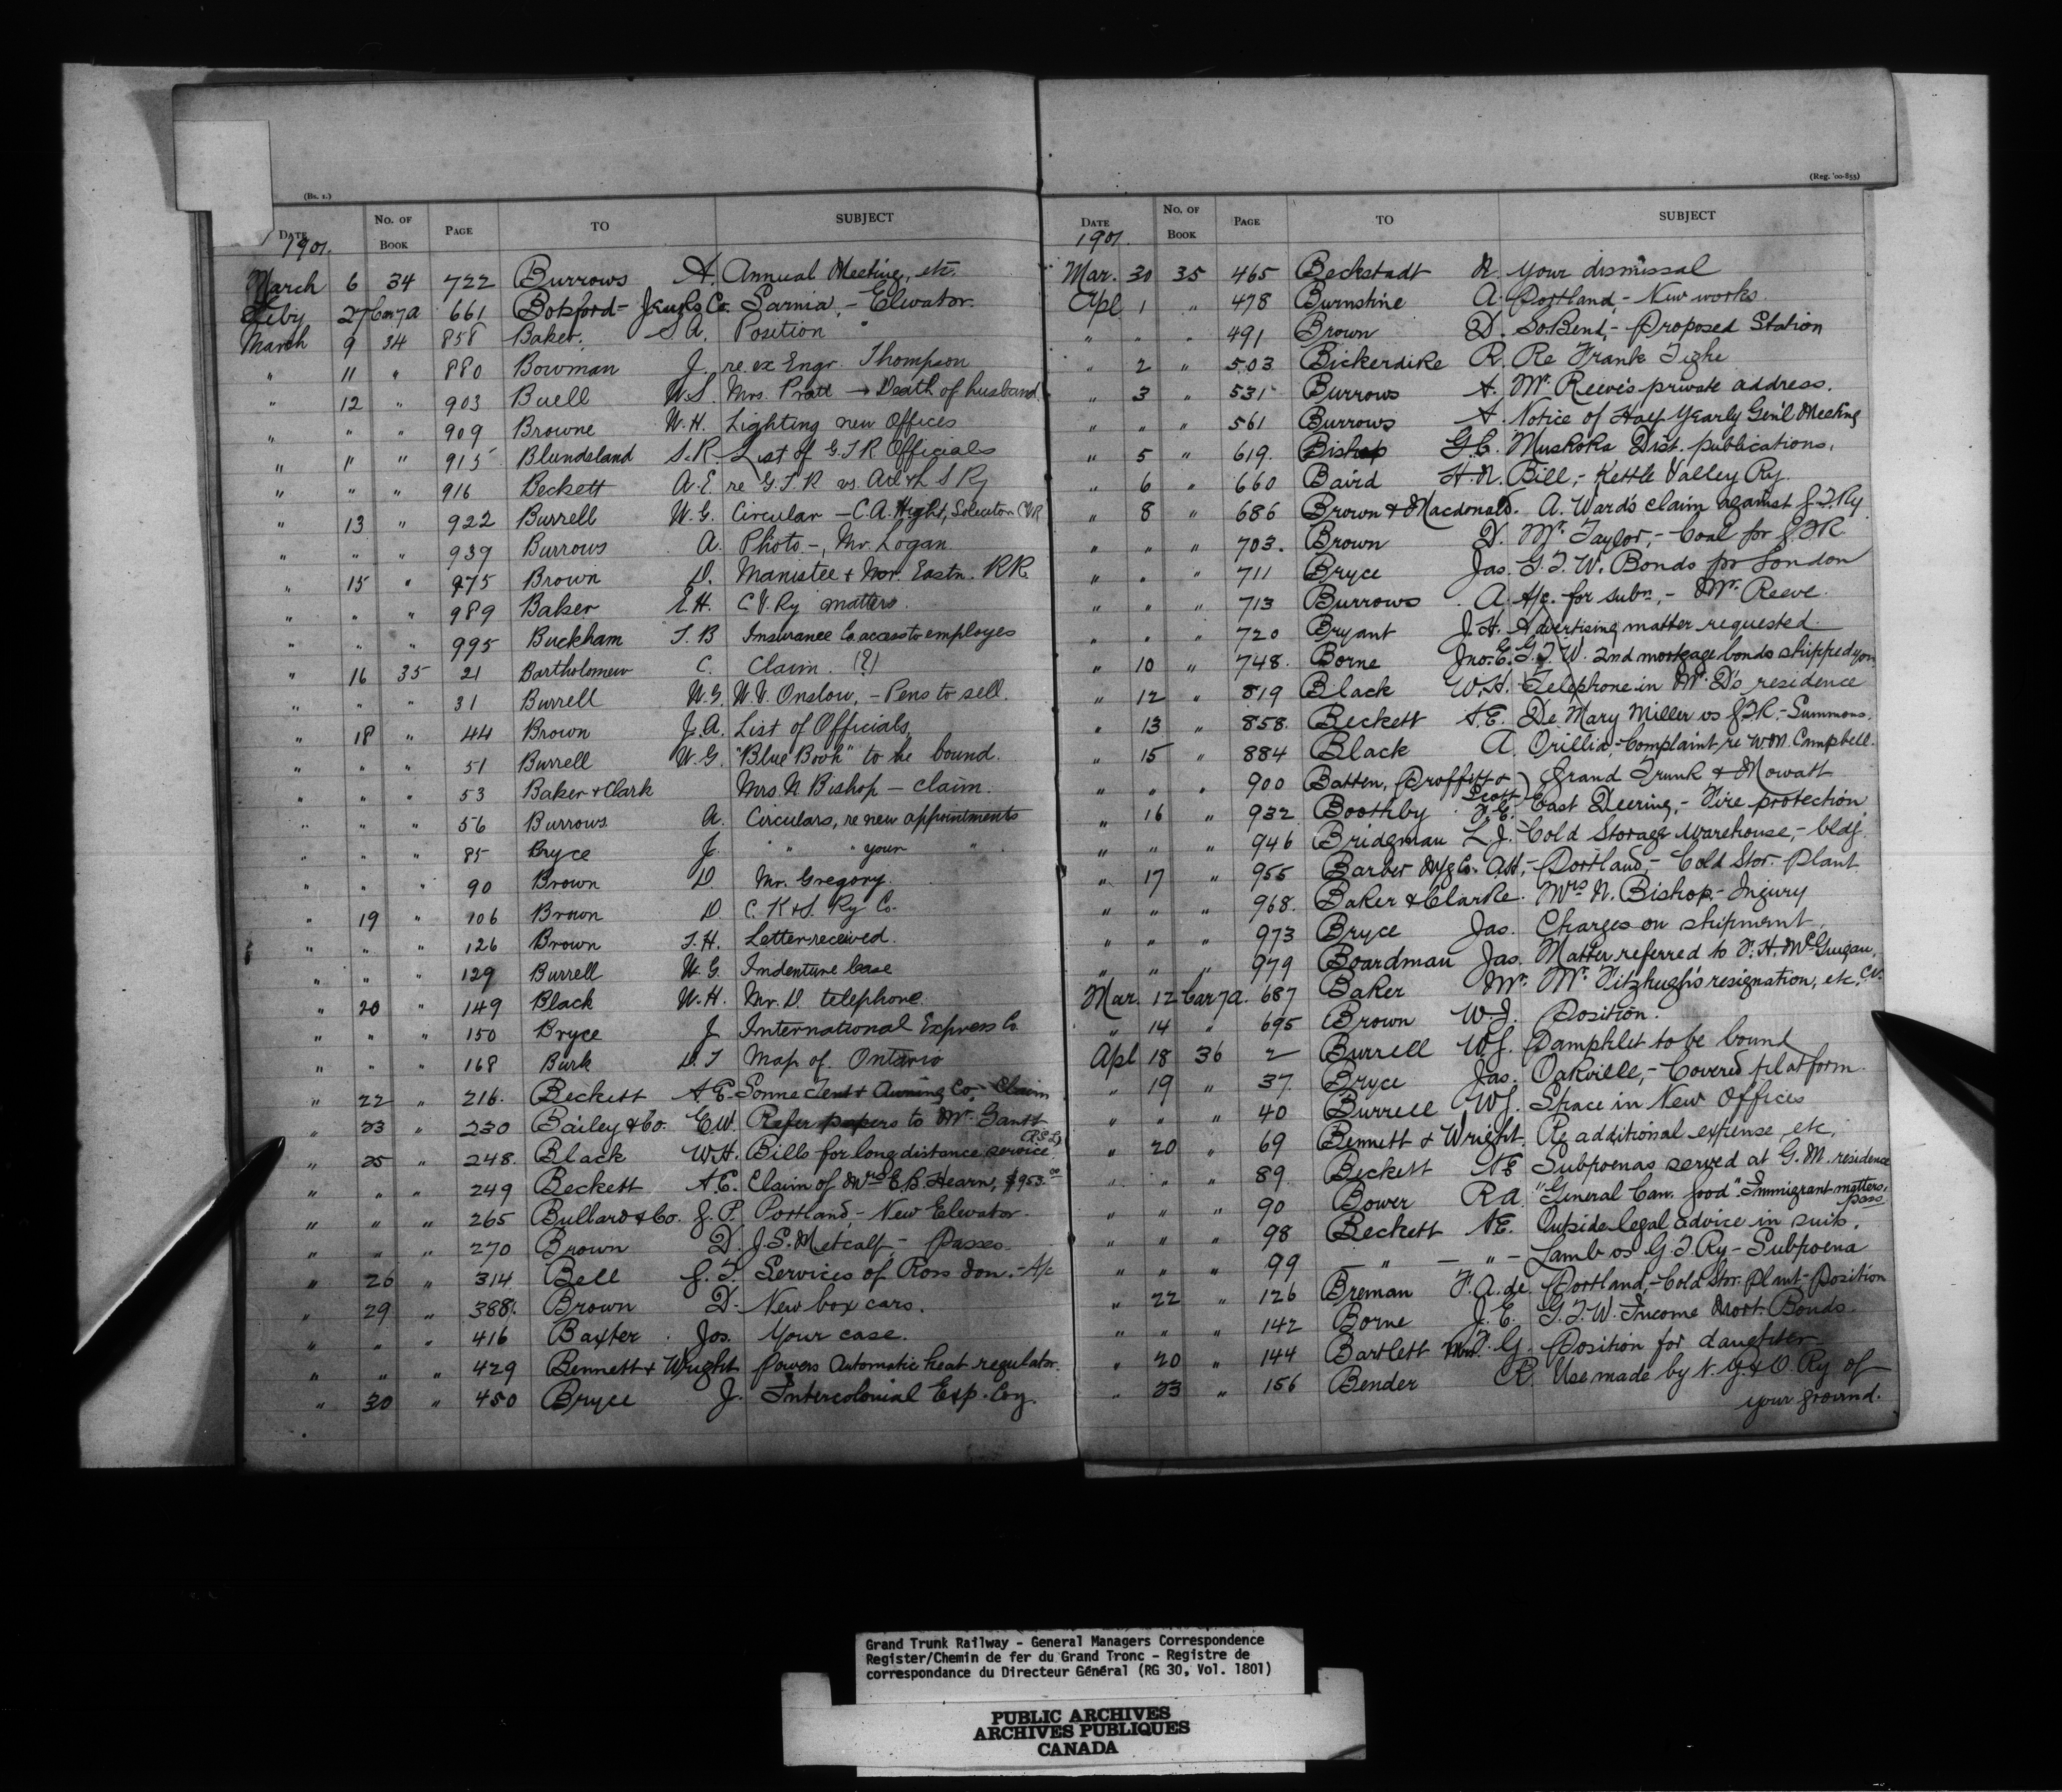 (Bs. 1.)
DATE No. OF BOOK PAGE TO SUBJECT
1901.
March 6 34 722 Burrows A. Annual Meeting, etc.
Feby 27 Car 7a 661 Botsford - Jenks Co. Sarnia, - Elevator
March 9 34 858 Baker. S. A. Position
" 11 " 880 Bowman J. re ex Engr. Thompson
" 12 " 903 Buell W.S. Mrs. Pratt - Death of husband
" " " 909 Browne W.H. Lighting new Offices
" " " 915 Blundeland S.R. List of G.T.R Officials
" " " 916 Beckett A.E. re G.T.R vs. S Ry
" 13 " 922 Burrell W.G. Circular - C.A. Hight, Solicitor
" " " 939 Burrows A. Photo -, Mr. Logan
" 15 " 975 Brown D. Manistee & Nor. Eastn. RR.
" " " 989 Baker E.H. C.V.Ry matters.
" " " 995 Buckham T.B Insurance Co. access to employes
" 16 35 21 Bartholomew C. Claim. (?)
" " " 31 Burrell W.G. W.V. Onslow, - Pens to sell.
" 18 " 44 Brown J.A. List of Officials
" " " 51 Burrell W.G. "Blue Book" to be bound.
" " " 53 Baker & Clark Mrs. N. Bishop - Claim.
" " " 56 Burrows A. Circulars, re new appointments
" " " 85 Bryce J. " " your "
" " " 90 Brown D. Mr. Gregory.
" 19 " 106 Brown D. C. K & S. Ry Co.
" " " 126 Brown T.H. Letter received.
" " " 129 Burrell W.G. Indenture Case
" 20 " 149 Black W.H. Mr. D. telephone.
" " " 150 Bryce J International Express Co.
" " " 168 Burk D.T Map of Ontario
" 22 " 216. Beckett A.E. Sonne Tent & Awning Co. - Claim
" 23 " 230 Bailey & Co. E.W. Refer papers to Mr. Gantt
" 25 " 248. Black W.H. Bills for long distance service
" " " 249 Beckett A.E. Claim of Mrs E.B. Hearn, $953.00
" " " 265 Bullard & Co. G.P. Portland, - New Elevator
" " " 270 Brown D. J.S. Metcalf, - Passes.
" 26 " 314 Bell J.T. Services of Ross Don. - A/c
" 29 " 388. Brown D. New box cars.
" " " 416 Baxter Jos. Your case.
" " " 429 Bennett & Wright Powers Automatic heat regulator.
" 30 " 450 Bryce J. Intercolonial Exp. Coy.
(Reg. '00-855)
DATE No. OF BOOK PAGE TO SUBJECT
1901.
Mar. 30 35 465 Beckstadt N. Your dismissal
Apl 1 " 478 Burnstine A. Portland, - New works.
" " " 491 Brown D. So Bend, - Proposed Station
" 2 " 503 Bickerdike R. Re Frank Tighe
" 3 " 531 Burrows A. Mr. Reeve's private address.
" " " 561 Burrows A. Notice of Half Yearly Gen'l Meeting
" 5 " 619. Bishop G.C. Muskoka Dist. publications.
" 6 " 660 Baird H.N. Bill, - Kettle Valley Ry.
" 8 " 686 Brown & Macdonald. A. Ward's claim against G.T.Ry
" " " 703. Brown D. Mr. Taylor, - Coal for G.T.R.
" " " 711 Bryce Jas. G.T.W. Bonds for London
" " " 713 Burrows A. A/c. for subn, - Mr. Reeve.
" " " 720 Bryant J.H. Advertising matter requested
" 10 " 748. Borne Jno. E. G.T.W. 2nd mortgage bonds shipped you
" 12 " 819 Black W.H. Telephone in Mr. D's residence
" 13 " 858. Beckett A.E. De Mary Miller vs G.T.R. - Summons.
" 15 " 884 Black A. Orillia, - Complaint re Wm. Campbell.
" " " 900 Batten, Proffitt & Scott Grand Trunk & Mowatt
" 16 " 932 Boothby F.E. East Deering, - Fire protection
" " " 946 Bridgman L.J. Cold Storage warehouse, - bldg.
" 17 " 955 Barber Mfg Co. Portland, - Cold Stor. Plant
" " " 968. Baker & Clarke. Mrs N. Bishop. - Injury
" " " 973 Bryce Jas. Charges on shipment.
" " " 979 Boardman Jas. Matter referred to F.H. McGuigan.
Mar. 12 Car 7a. 687 Baker Mr. Mr. Fitzhugh's resignation, etc. C.V.
" 14 " 695 Brown W.J. Position.
Apl 18 36 2 Burrell W.G. Pamphlet to be bound
" 19 " 37. Bryce Jas. Oakville, - Covered platform.
" " " 40 Burrell W.G. Space in New Offices
" 20 " 69 Bennett & Wright. Re additional expense etc.
" " " 89 Beckett A.E. Subpoenas served at G.M. residence
" " " 90 Bower R.A. "General Can. food" Immigrant matters. pass
" " " 98 Beckett A.E. Outside legal advice in suits.
" " " 99 - " - " - Lamb vs G.T.Ry - Subpoena
" 22 " 126 Breman F.A. de. Portland, - Cold Stor. Plant - Position
" " " 142 Borne J.E. G.T.W. Income Mort. Bonds.
" 20 " 144 Bartlett Mrs. F.G. Position for daughter
" 23 " 156 Bender R. Use made by Ry of
your ground.
Grand Trunk Railway - General Managers Correspondence
Register/Chemin de fer du Grand Tronc - Registre de
correspondance du Directeur Général (RG 30, Vol. 1801)
PUBLIC ARCHIVES
ARCHIVES PUBLIQUES
CANADA